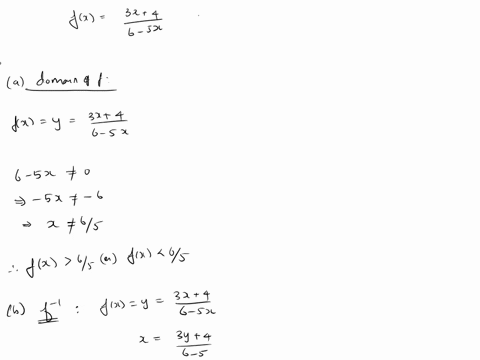 f(x) = 3x+4 / 6-5x
(a) domain of f.
f(x) = y = 3x+4 / 6-5x
6-5x ≠ 0
⇒ -5x ≠ -6
⇒ x ≠ 6/5
∴ f(x) > 6/5 (or) f(x) < 6/5
(b) f⁻¹ : f(x) = y = 3x+4 / 6-5x
x = 3y+4 / 6-5